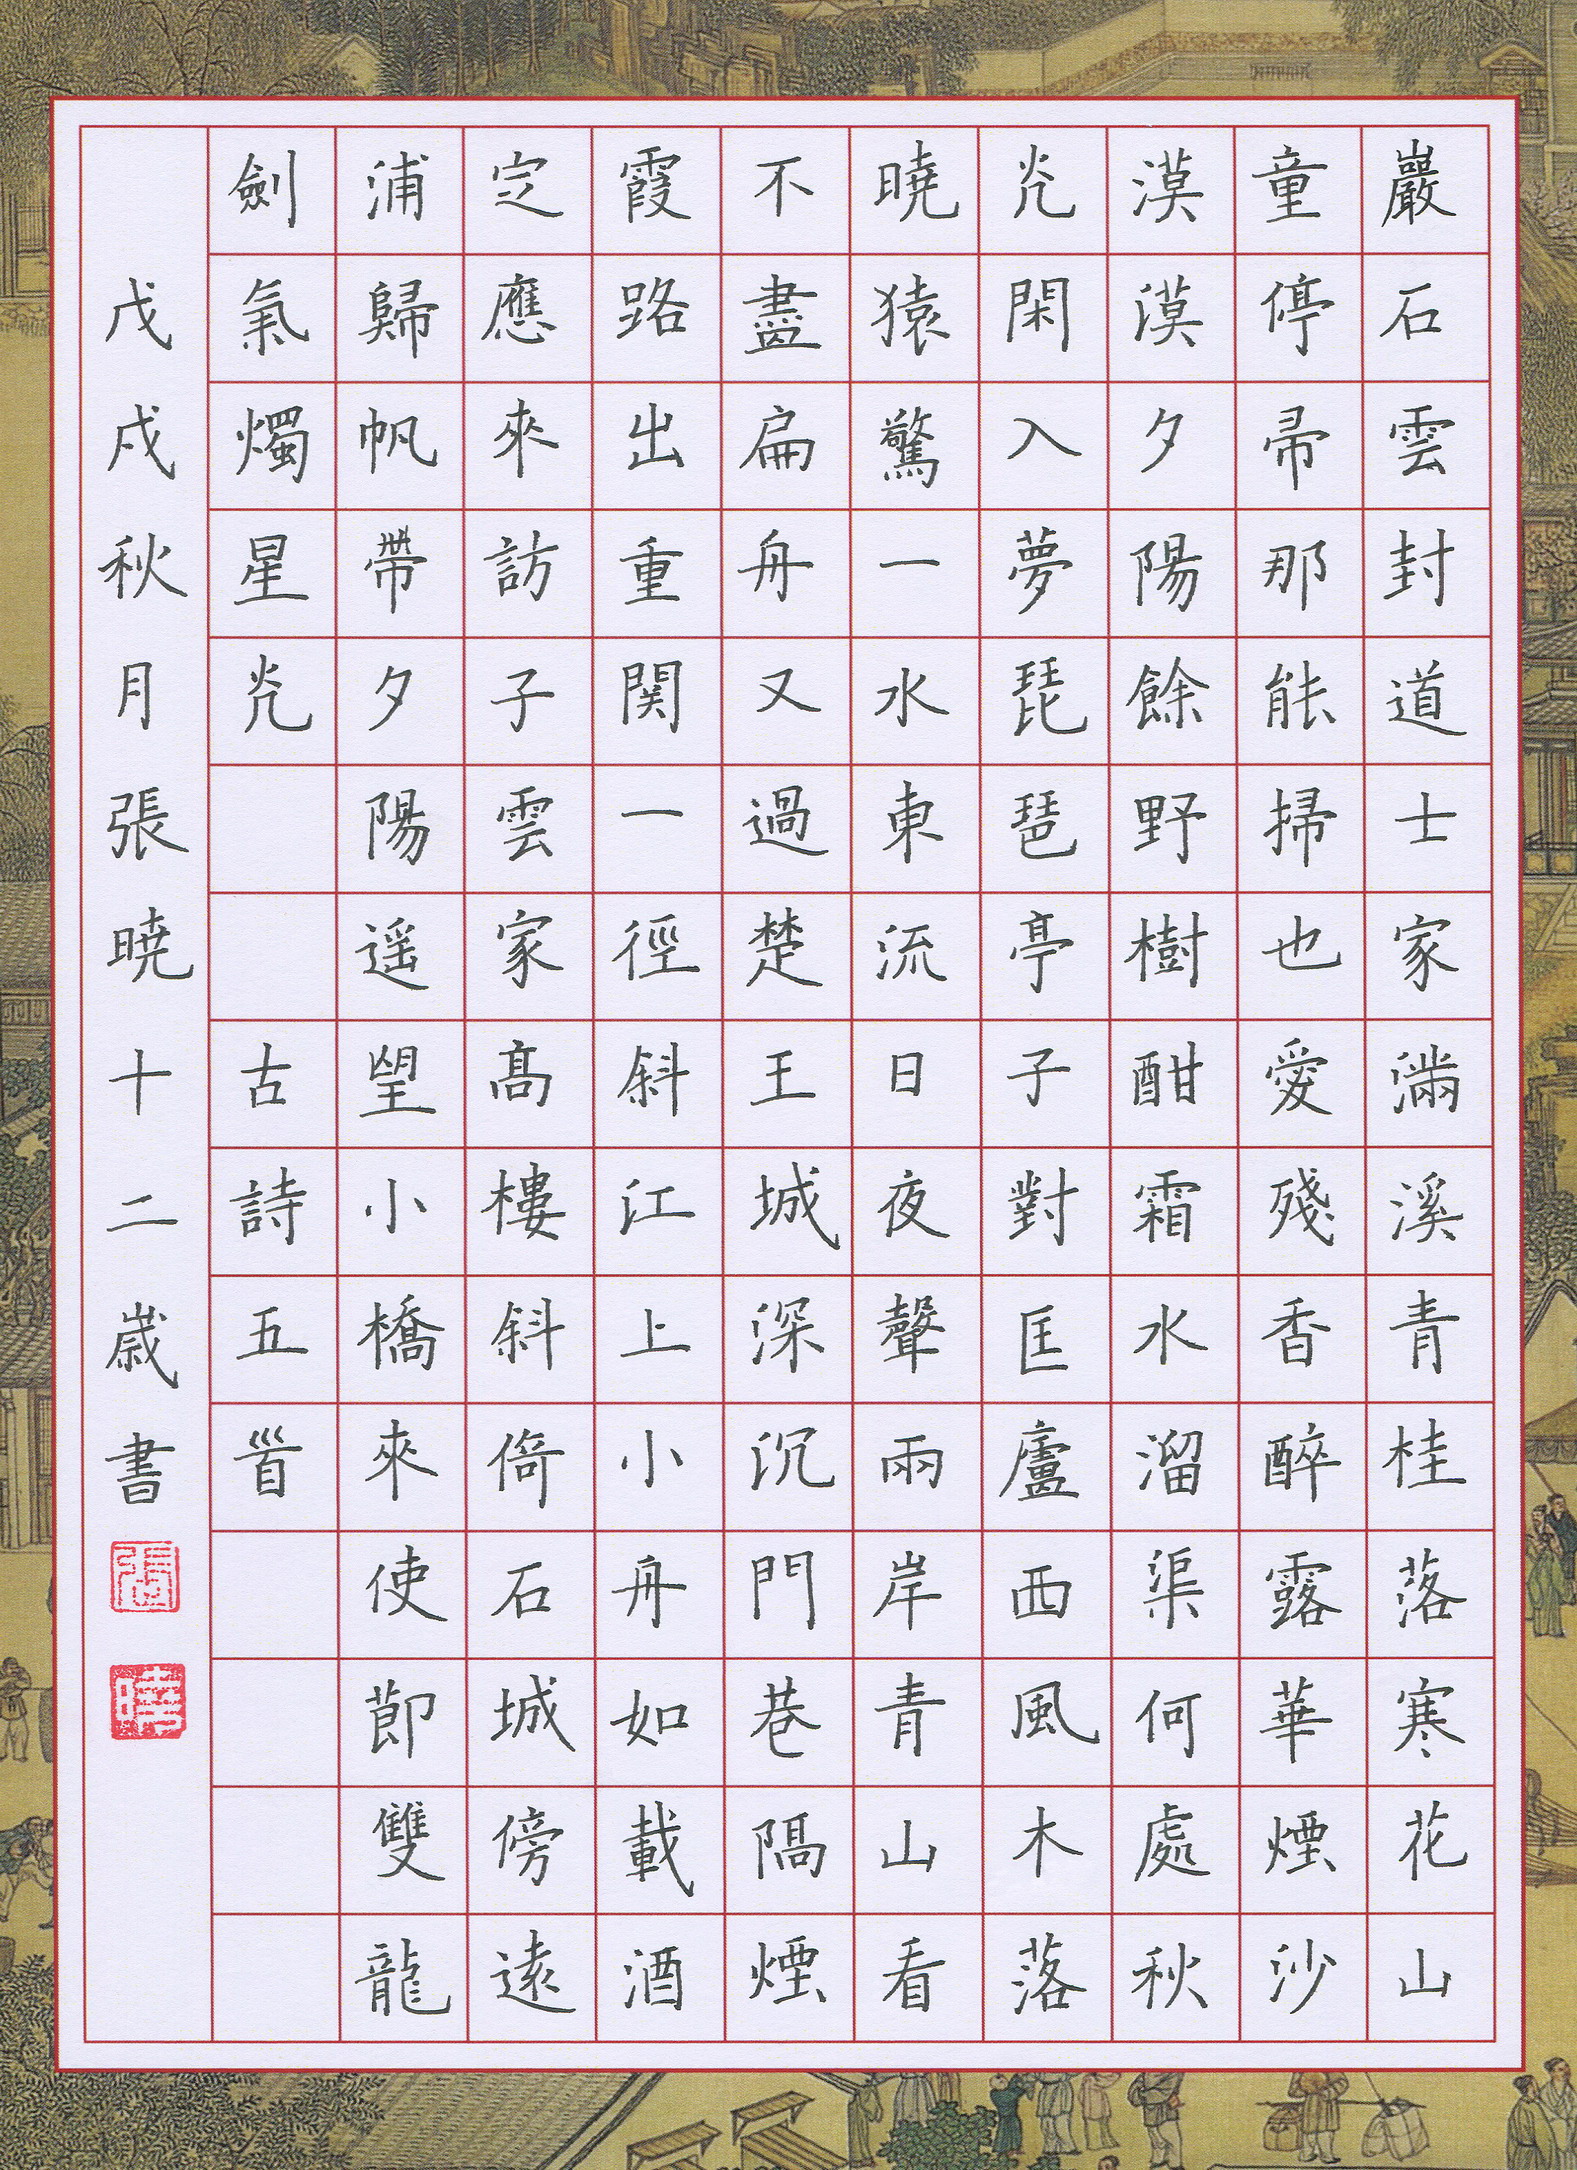 巖石雲封道士家滿溪青桂落寒花山
童停帚那能掃也愛殘香醉露華煙沙
漠漠夕陽餘野樹酣霜水溜渠何處秋
光閑入夢琵琶亭子對匡廬西風木落
曉猿驚一水東流日夜聲兩岸青山看
不盡扁舟又過楚王城深沉門巷隔煙
霞路出重関一徑斜江上小舟如載酒
定應來訪子雲家高樓斜倚石城傍遠
浦歸帆帶夕陽遥望小橋來使節雙龍
劍氣燭星光
古詩五首
戊戌秋月張曉十二歲書
張
曉